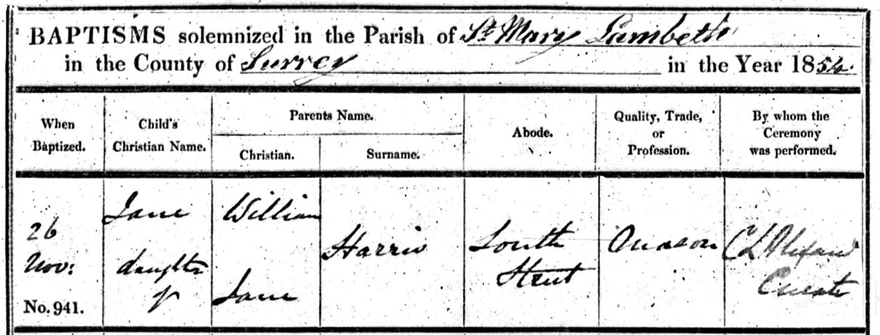 BAPTISMS solemnized in the Parish of St. Mary Lambeth
in the County of Surrey in the Year 1854.
When Baptized. Child's Christian Name. Parents Name. Abode. Quality, Trade, or Profession. By whom the Ceremony was performed.
Christian. Surname.
Jane William
26 Harris South Mason
Nov: daughter Street Curate
of Jane
No. 941.